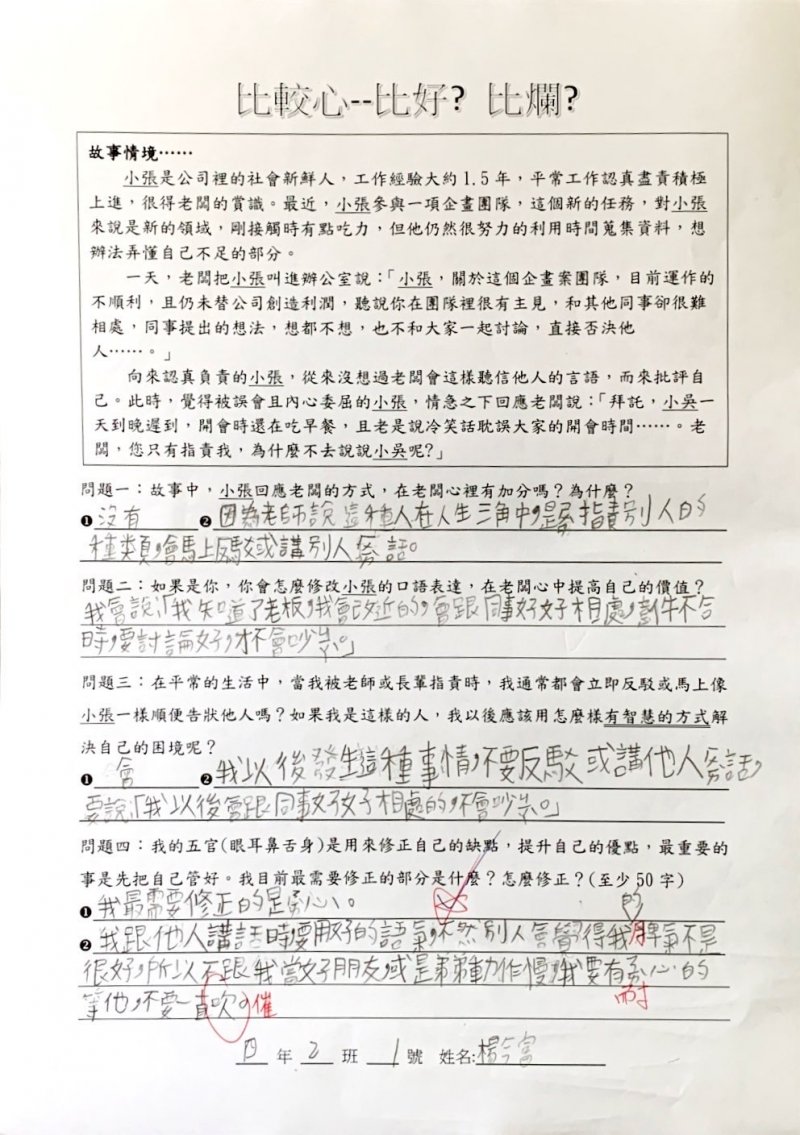 比較心--比好? 比爛?
故事情境……
小張是公司裡的社會新鮮人，工作經驗大約1.5年，平常工作認真盡責積極
上進，很得老闆的賞識。最近，小張參與一項企畫團隊，這個新的任務，對小張
來說是新的領域，剛接觸時有點吃力，但他仍然很努力的利用時間蒐集資料，想
辦法弄懂自己不足的部分。
一天，老闆把小張叫進辦公室說：「小張，關於這個企畫案團隊，目前運作的
不順利，且仍未替公司創造利潤，聽說你在團隊裡很有主見，和其他同事卻很難
相處，同事提出的想法，想都不想，也不和大家一起討論，直接否決他
人……。」
向來認真負責的小張，從來沒想過老闆會這樣聽信他人的言語，而來批評自
己。此時，覺得被誤會且內心委屈的小張，情急之下回應老闆說：「拜託，小吳一
天到晚遲到，開會時還在吃早餐，且老是說冷笑話耽誤大家的開會時間……。老
闆，您只有指責我，為什麼不去說說小吳呢?」
問題一：故事中，小張回應老闆的方式，在老闆心裡有加分嗎？為什麼？
❶沒有 ❷因為老師說這種人在人生三角中，是指責別人的
種類，會馬上反駁或講別人話。
問題二：如果是你，你會怎麼修改小張的口語表達，在老闆心中提高自己的價值？
我會說：「我知道了老板，我會改近的，會跟同事好好相處，不合
時，要討論好，才不會吵架。」
問題三：在平常的生活中，當我被老師或長輩指責時，我通常都會立即反駁或馬上像
小張一樣順便告狀他人嗎？如果我是這樣的人，我以後應該用怎麼樣有智慧的方式解
決自己的困境呢？
❶會 ❷我以後發生這種事情，不要反駁或講他人話，
要說：「我以後會跟同事好好相處的，不會吵架。」
問題四：我的五官(眼耳鼻舌身)是用來修正自己的缺點，提升自己的優點，最重要的
事是先把自己管好。我目前最需要修正的部分是什麼？怎麼修正？(至少50字)
❶我最需要修正的是心、。
的
❷我跟他人講話時，要用好的語氣，不然別人會覺得我脾氣不是
很好，所以不跟我當好朋友，或是弟弟動作慢，我要有心的
耐
等他，不要一直吹。催
四年2班1號 姓名:楊